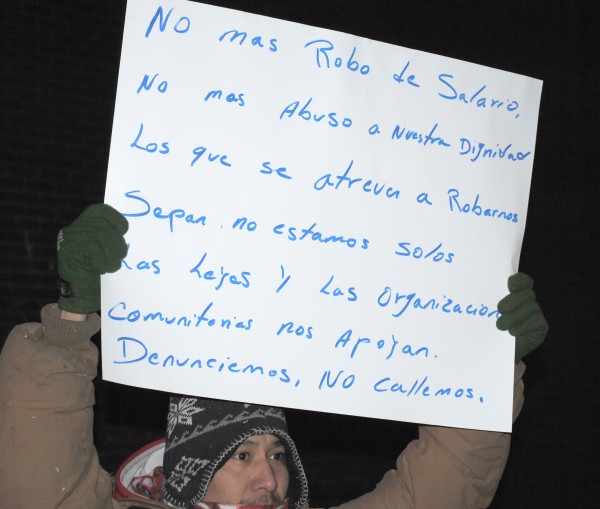 No mas Robo de Salario,
No mas Abuso a Nuestra Dignidad
Los que se atreven a Robarnos
Sepan no estamos solos
Las Leyes y Las Organizacion
Comunitarias nos Apoyan.
Denunciemos, No callemos.